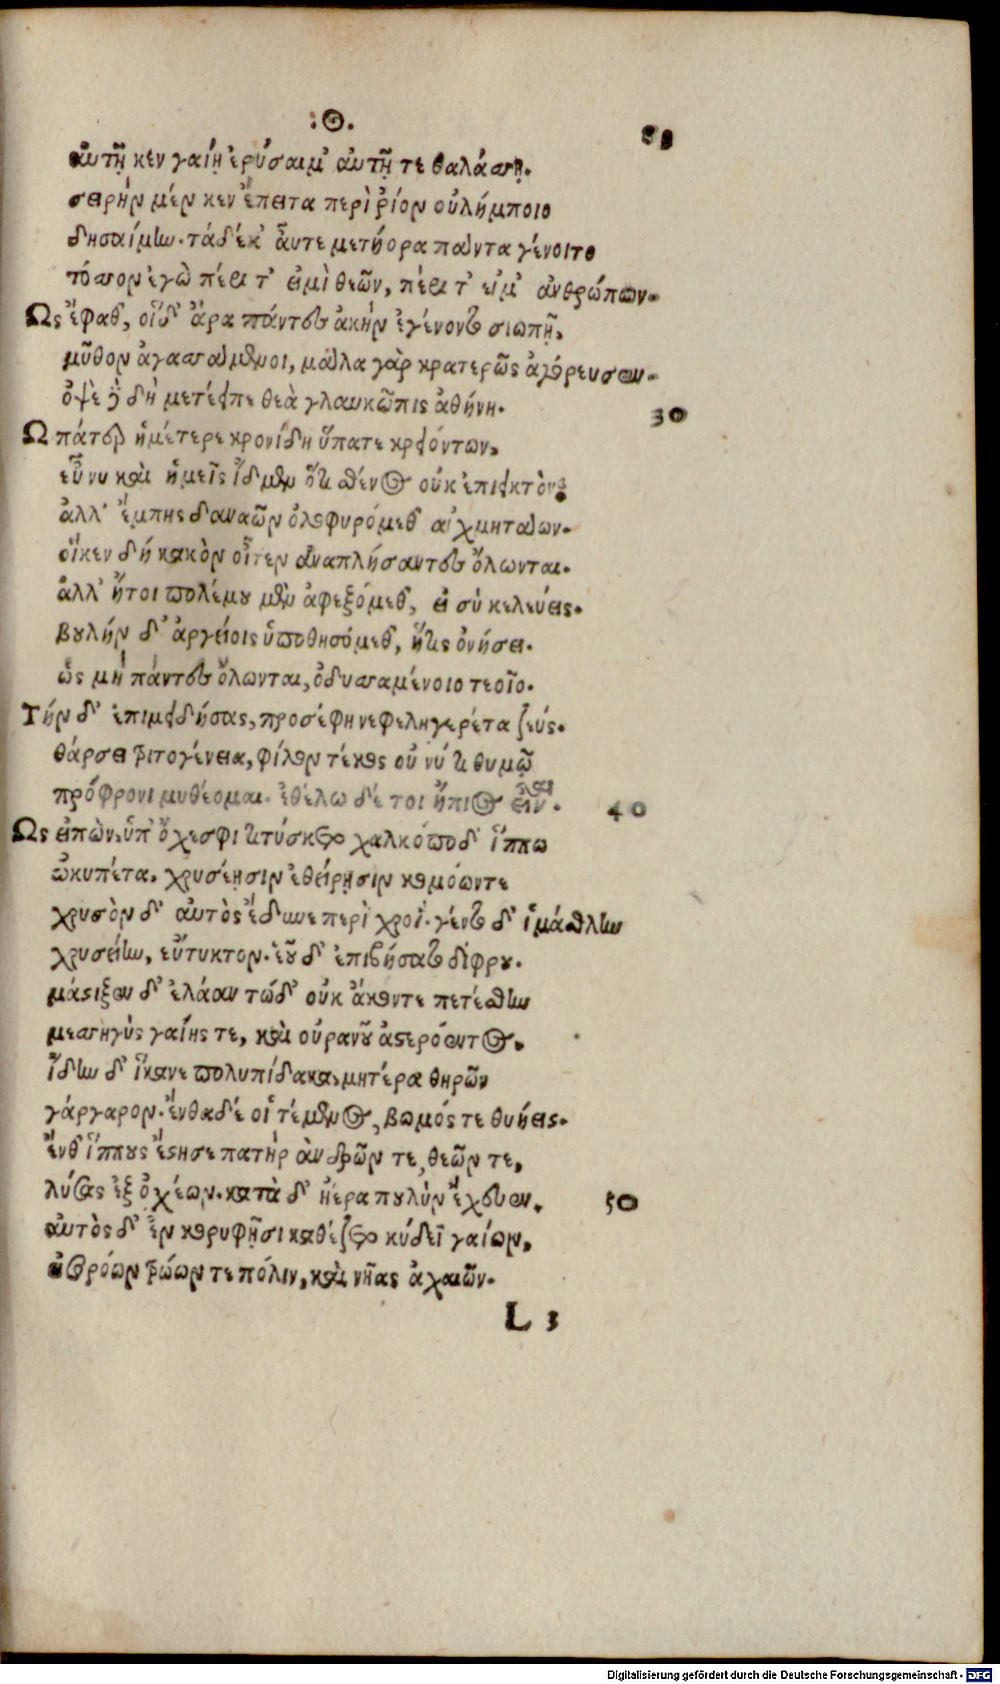 :Θ.
89
αὐτῇ κεν γαίῃ ἐρύσαιμ' αὐτῇ τε θαλάσσῃ.
σειρὴν μέν κεν ἔπειτα περὶ ῥίον οὐλύμποιο
δησαίμην. τὰ δέ κ' αὖτε μετήορα πάντα γένοιτο
τόσσον ἐγὼ περί τ' εἰμὶ θεῶν, περί τ' εἴμ' ἀνθρώπων.
Ως ἔφαθ', οἱ δ' ἄρα πάντες ἀκὴν ἐγένοντο σιωπῇ,
μῦθον ἀγασσάμενοι, μάλα γὰρ κρατερῶς ἀγόρευσεν.
ὀψὲ δὲ δὴ μετέειπε θεὰ γλαυκῶπις ἀθήνη.
30
Ω πάτερ ἡμέτερε κρονίδη ὕπατε κρειόντων,
εὖ νυ καὶ ἡμεῖς ἴδμεν ὅτι σθένος οὐκ ἐπιεικτόν·
ἀλλ' ἔμπης δαναῶν ὀλοφυρόμεθ' αἰχμητάων.
οἵ κεν δὴ κακὸν οἶτον ἀναπλήσαντες ὄλωνται.
ἀλλ' ἤτοι πολέμου μὲν ἀφεξόμεθ', εἰ σὺ κελεύεις.
βουλὴν δ' ἀργείοις ὑποθησόμεθ', ἥτις ὀνήσει.
ὡς μὴ πάντες ὄλωνται, ὀδυσσαμένοιο τεοῖο.
Τὴν δ' ἐπιμειδήσας, προσέφη νεφεληγερέτα ζεύς.
θάρσει τριτογένεια, φίλον τέκος οὔ νύ τι θυμῷ
πρόφρονι μυθέομαι. ἐθέλω δέ τοι ἤπιος εἶναι.
40
Ως εἰπὼν, ὑπ' ὄχεσφι τιτύσκετο χαλκόποδ' ἵππω
ὠκυπέτα. χρυσέῃσιν ἐθείρῃσιν κομόωντε
χρυσὸν δ' αὐτὸς ἔδυνε περὶ χροΐ. γέντο δ' ἱμάσθλην
χρυσείην, εὔτυκτον. ἑοῦ δ' ἐπιβήσατο δίφρου.
μάστιξεν δ' ἐλάαν τώδ' οὐκ ἄκοντε πετέσθην
μεσσηγὺς γαίης τε, καὶ οὐρανοῦ ἀστερόεντος.
ἴδην δ' ἵκανε πολυπίδακα, μητέρα θηρῶν
γάργαρον. ἔνθα δέ οἱ τέμενος, βωμός τε θυήεις.
ἔνθ' ἵππους ἔστησε πατὴρ ἀνδρῶν τε, θεῶν τε,
λύσας ἐξ ὀχέων. κατὰ δ' ἠέρα πουλὺν ἔχευεν.
50
αὐτὸς δ' ἐν κορυφῇσι καθέζετο κύδεϊ γαίων,
εἰσορόων τρώων τε πόλιν, καὶ νῆας ἀχαιῶν.
L 3
Digitalisierung gefördert durch die Deutsche Forschungsgemeinschaft - DFG